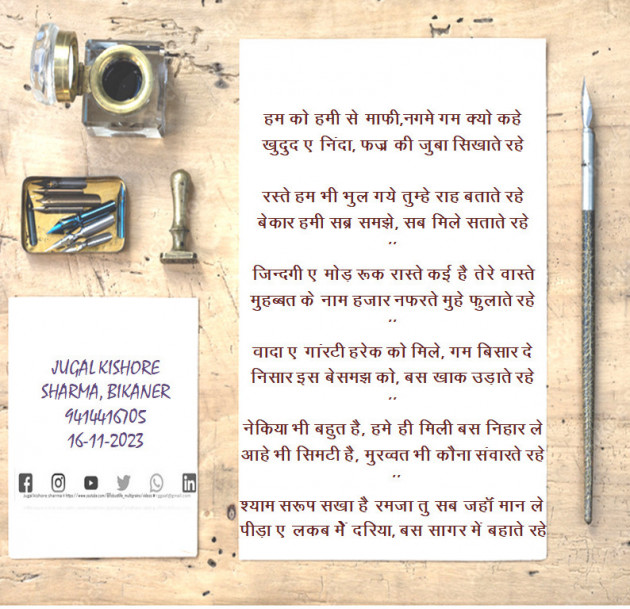 हम को हमी से माफी,नगमे गम क्यो कहे
खुदुद ए निंदा, फज्र की जुबा सिखाते रहे
रस्ते हम भी भुल गये तुम्हे राह बताते रहे
बेकार हमी सब्र समझे, सब मिले सताते रहे
,,
जिन्दगी ए मोड़ रूक रास्ते कई है तेरे वास्ते
मुहब्बत के नाम हजार नफरते मुहे फुलाते रहे
,,
वादा ए गांरटी हरेक को मिले, गम बिसार दे
निसार इस बेसमझ को, बस खाक उड़ाते रहे
,,
नेकिया भी बहुत है, हमे ही मिली बस निहार ले
आहे भी सिमटी है, मुरव्वत भी कौना संवारते रहे
,,
श्याम सरूप सखा है रमजा तु सब जहॉं मान ले
पीड़ा ए लकब में दरिया, बस सागर में बहाते रहे
JUGAL KISHORE
SHARMA, BIKANER
9414416705
16-11-2023